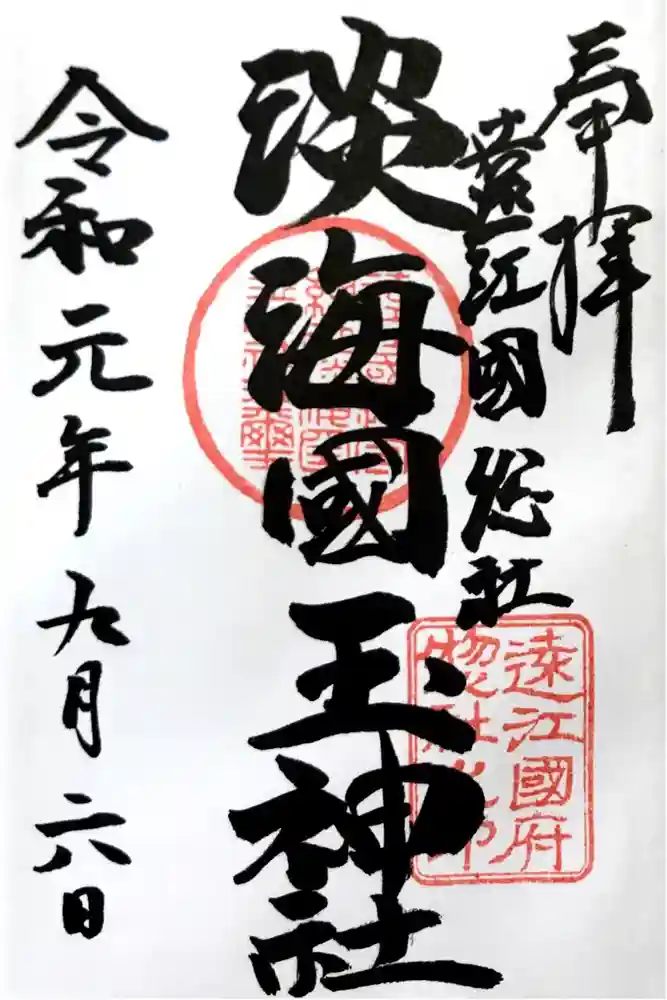 奉拝
遠江國総社
淡海國玉神社
令和元年九月二八日
遠江國府
惣社之印